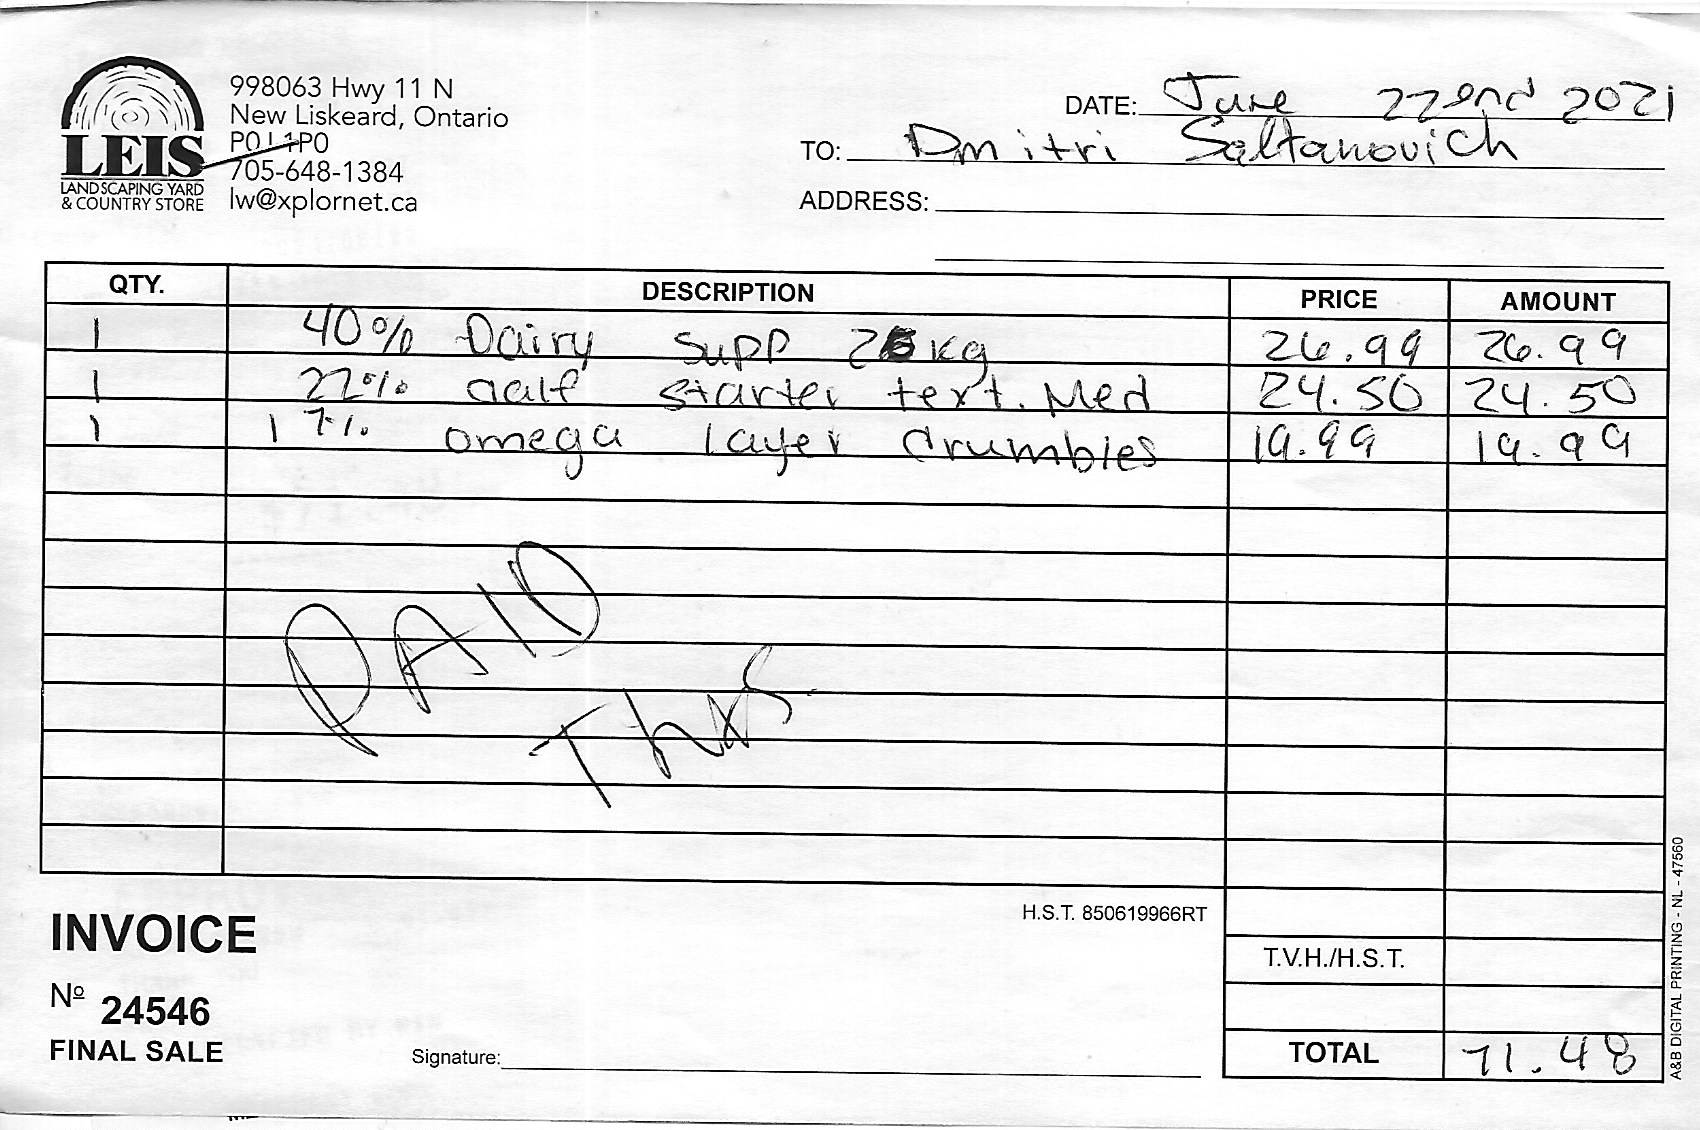 LEIS
LANDSCAPING YARD
& COUNTRY STORE
998063 Hwy 11 N
New Liskeard, Ontario
P0J 1P0
705-648-1384
lw@xplornet.ca
DATE: June 22nd 2021
TO: Dmitri Saltanovich
ADDRESS:
QTY. DESCRIPTION PRICE AMOUNT
1 40% Dairy Supp 25kg 26.99 26.99
1 22% Calf starter text. Med 24.50 24.50
1 17% omega layer crumbles 19.99 19.99
PAID
INVOICE
H.S.T. 850619966RT
T.V.H./H.S.T.
Nº 24546
FINAL SALE
Signature:
TOTAL 71.48
A&B DIGITAL PRINTING - NL - 47560